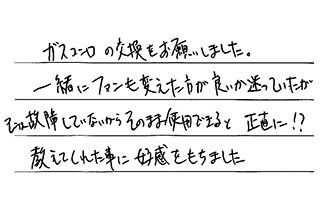 ガスコンロの交換をお願いしました。
一緒にファンも変えた方が良いか迷っていたが
故障していないからそのまま使用できると 正直に!?
教えてくれた事に 好感をもちました